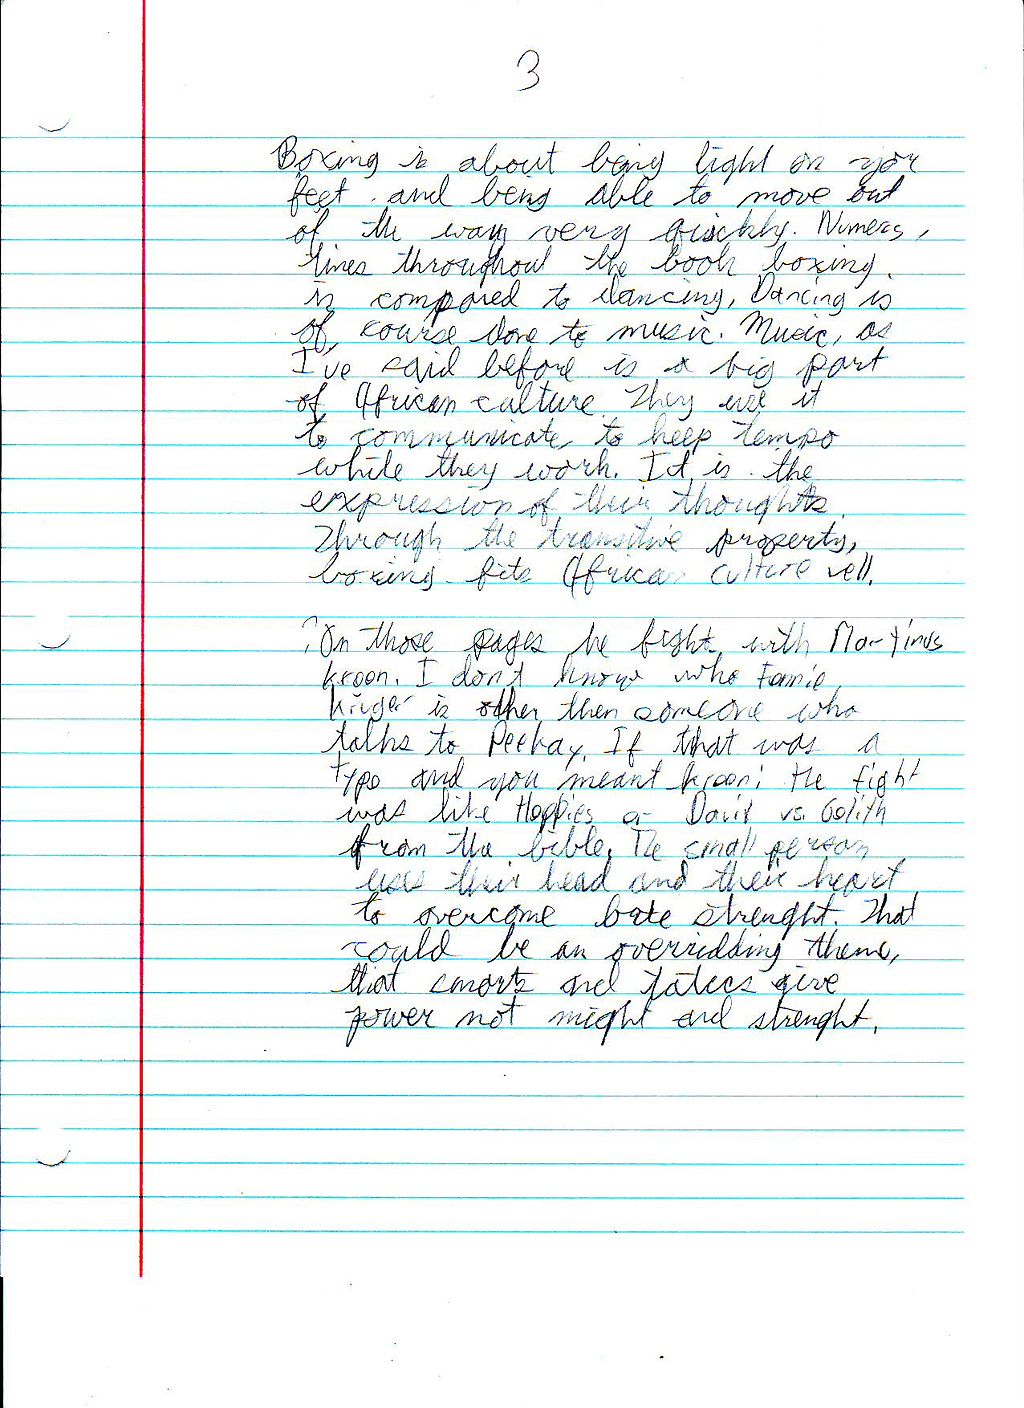 3
Boxing is about being light on your
feet and being able to move out
of the way very quickly. Numers
times throughout the book boxing
is compared to dancing. Dancing is
of course done to music. Music, as
I've said before is a big part
of African culture. They use it
to communicate, to keep tempo
while they work. It is the
expression of their thoughts.
Through the transitive property,
boxing fits African culture well.
On those pages he fight with Martinus
kroon. I don't know who Famie
Kruger is other then someone who
talks to Peekay. If that was a
typo and you meant kroon: the fight
was like Hoppies or David vs. Golith
from the bible. The small person
uses their head and their heart
to overcome brute strenght. That
could be an overridding theme,
that smarts and give
power not might and strenght.